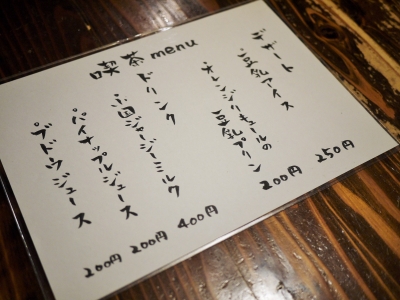 喫茶menu
デザート
豆乳アイス 250円
オレンジリキュールの
豆乳プリン 200円
ドリンク
小国ジャージーミルク 400円
パイナップルジュース 200円
ブドウジュース 200円